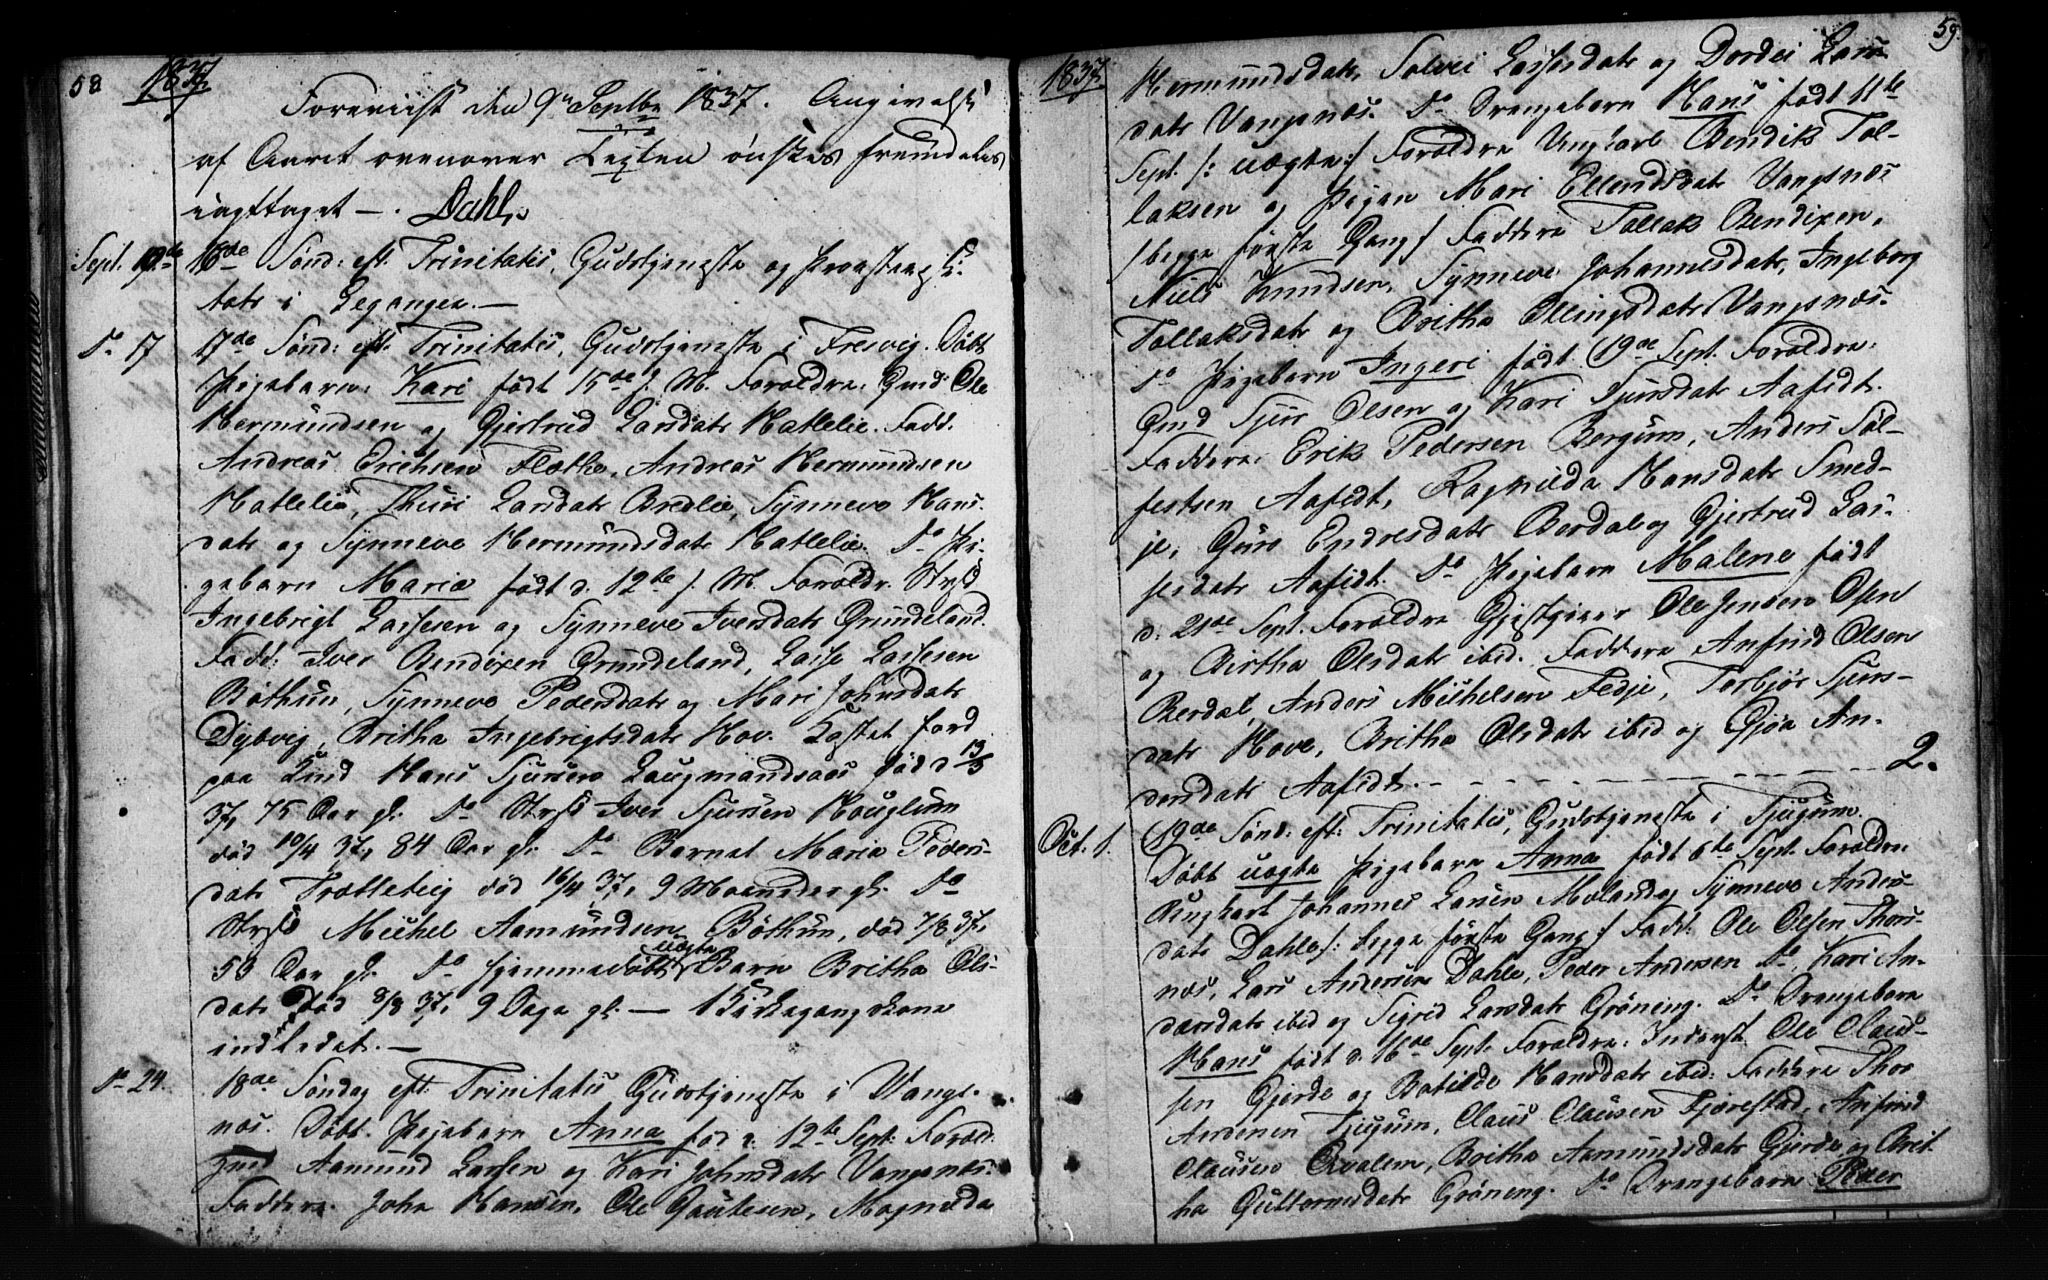 58
1837.
Foreviist den 9de Septbr 1837. Angivelse
af Aaret ovenover Texten önskes fremdeles
iagttaget —. Dahl.
Sept. 10de 16de Sönd: eft. Trinitatis, Gudstjeneste og
i Leganger. —
Do 17 17de Sönd: eft. Trinitatis, Gudstjeneste i Fresvig. Döbt
Pigebarn: Kari födt 15de f. M. Forældre: Gmd: Ole
Hermundsen og Gjertrud Larsdatr Hatlelie. Fadd.
Andreas Erichsen Flethe, Andreas Hermundsen
Hatlelie, Thuri Larsdatr Bredlie, Synneve Hans-
datr og Synneve Hermundsdatr Hatlelie. Do Pi-
gebarn Maria födt d. 12te f. M. Forældr.
Ingebrigt Lassesen og Synneve Iversdatr Grundeland.
Fadd: Iver Bendixen Grundeland, Lasse Lassesen
Böthun, Synneve Pedersdatr og Mari Johnsdatr
Dybvig, Britha Ingebrigtsdatr Hov. Kastet Jord
paa Hans Sjursen död d 13/3
37, 75 Aar gl. Do Iver Sjursen Houglum
död 10/4 37, 84 Aar gl. Do Barnet Maria Peders-
datr Trætteteig död 16/4 37, 9 Maaneder gl. Do
Michel Aamundsen Böthun, död 7/8 37,
53 Aar gl. Do hjemmedöbt uægte Barn Britha Ols-
datr död 8/8 37, 9 Dage gl. — 1 Kirkegangskone
indledet. —
Do 24. 18de Söndag eft. Trinitatis Gudstjeneste i Vangs-
næs. Döbt Pigebarn Anna fød d. 12te Sept: Foræld:
Gmd Aamund Lassen og Kari Johnsdatr Vangsnæs.
Faddere. John Hansen, Ole Gautesen, Magnilda
59.
1837.
Hermundsdatr, Solvei Lassesdatr og Dordei Lars-
datr Vangsnæs. Do Drengebarn Hans födt 11te
Sept. /: uægte :/ Forældre Ungkarl Bendik Tol-
laksen og Pigen Mari Ellendsdatr Vangsnæs
/ begge förste Gang / Faddere Tollak Bendixen,
Niels Knudsen, Synneve Johannesdatr, Ingeborg
Tollaksdatr og Britha Ellingsdatr Vangsnæs.
Do Pigebarn Ingeri födt 19de Sept. Forældre:
Gmd Sjur Olsen og Kari Sjursdatr Aafedt.
Faddere: Erik Pedersen Bergum, Anders Söl-
festsen Aafedt, Ragnilda Hansdatr Smed-
je, Guro Endresdatr Berdal og Gjertrud Las-
sesdatr Aafedt. Do Pigebarn Malene födt
d. 21de Sept. Forældre Gjestgiver Ole Jensen Osen
og Birtha Olsdatr ibid. Faddere Anfind Olsen
Berdal, Anders Michelsen Fedje, Torbjör Sjurs-
datr Hove, Britha Olsdatr ibid og Gjöa An-
dersdatr Aafedt. - - - - - - - - - 2.
Oct. 1. 19de Sönd: eft: Trinitatis, Gudstjeneste i Tjugum.
Döbt uægte Pigebarn Anna födt 6te Sept. Forældre
Ungkarl Johannes Larsen Moland og Synneve Anders-
datr Dahle /: begge förste Gang :/ Fadd: Ole Olsen Thors-
næs, Lars Andersen Dahle, Peder Andersen Do, Kari An-
dersdatr ibid og Sigrid Larsdatr Gröneng. Do Drengebarn
Hans födt d. 16de Sept. Forældre: Inderst Ole Claus-
sen Gjerde og Botilde Hansdatr ibid: Faddere Thor
Andersen Tjugum, Claus Claussen Fjærestad, Anfind
Claussen Qvalem, Britha Aamundsdatr Gjerde og Brit-
ha Guttormsdatr Gröneng. Do Drengebarn Peder